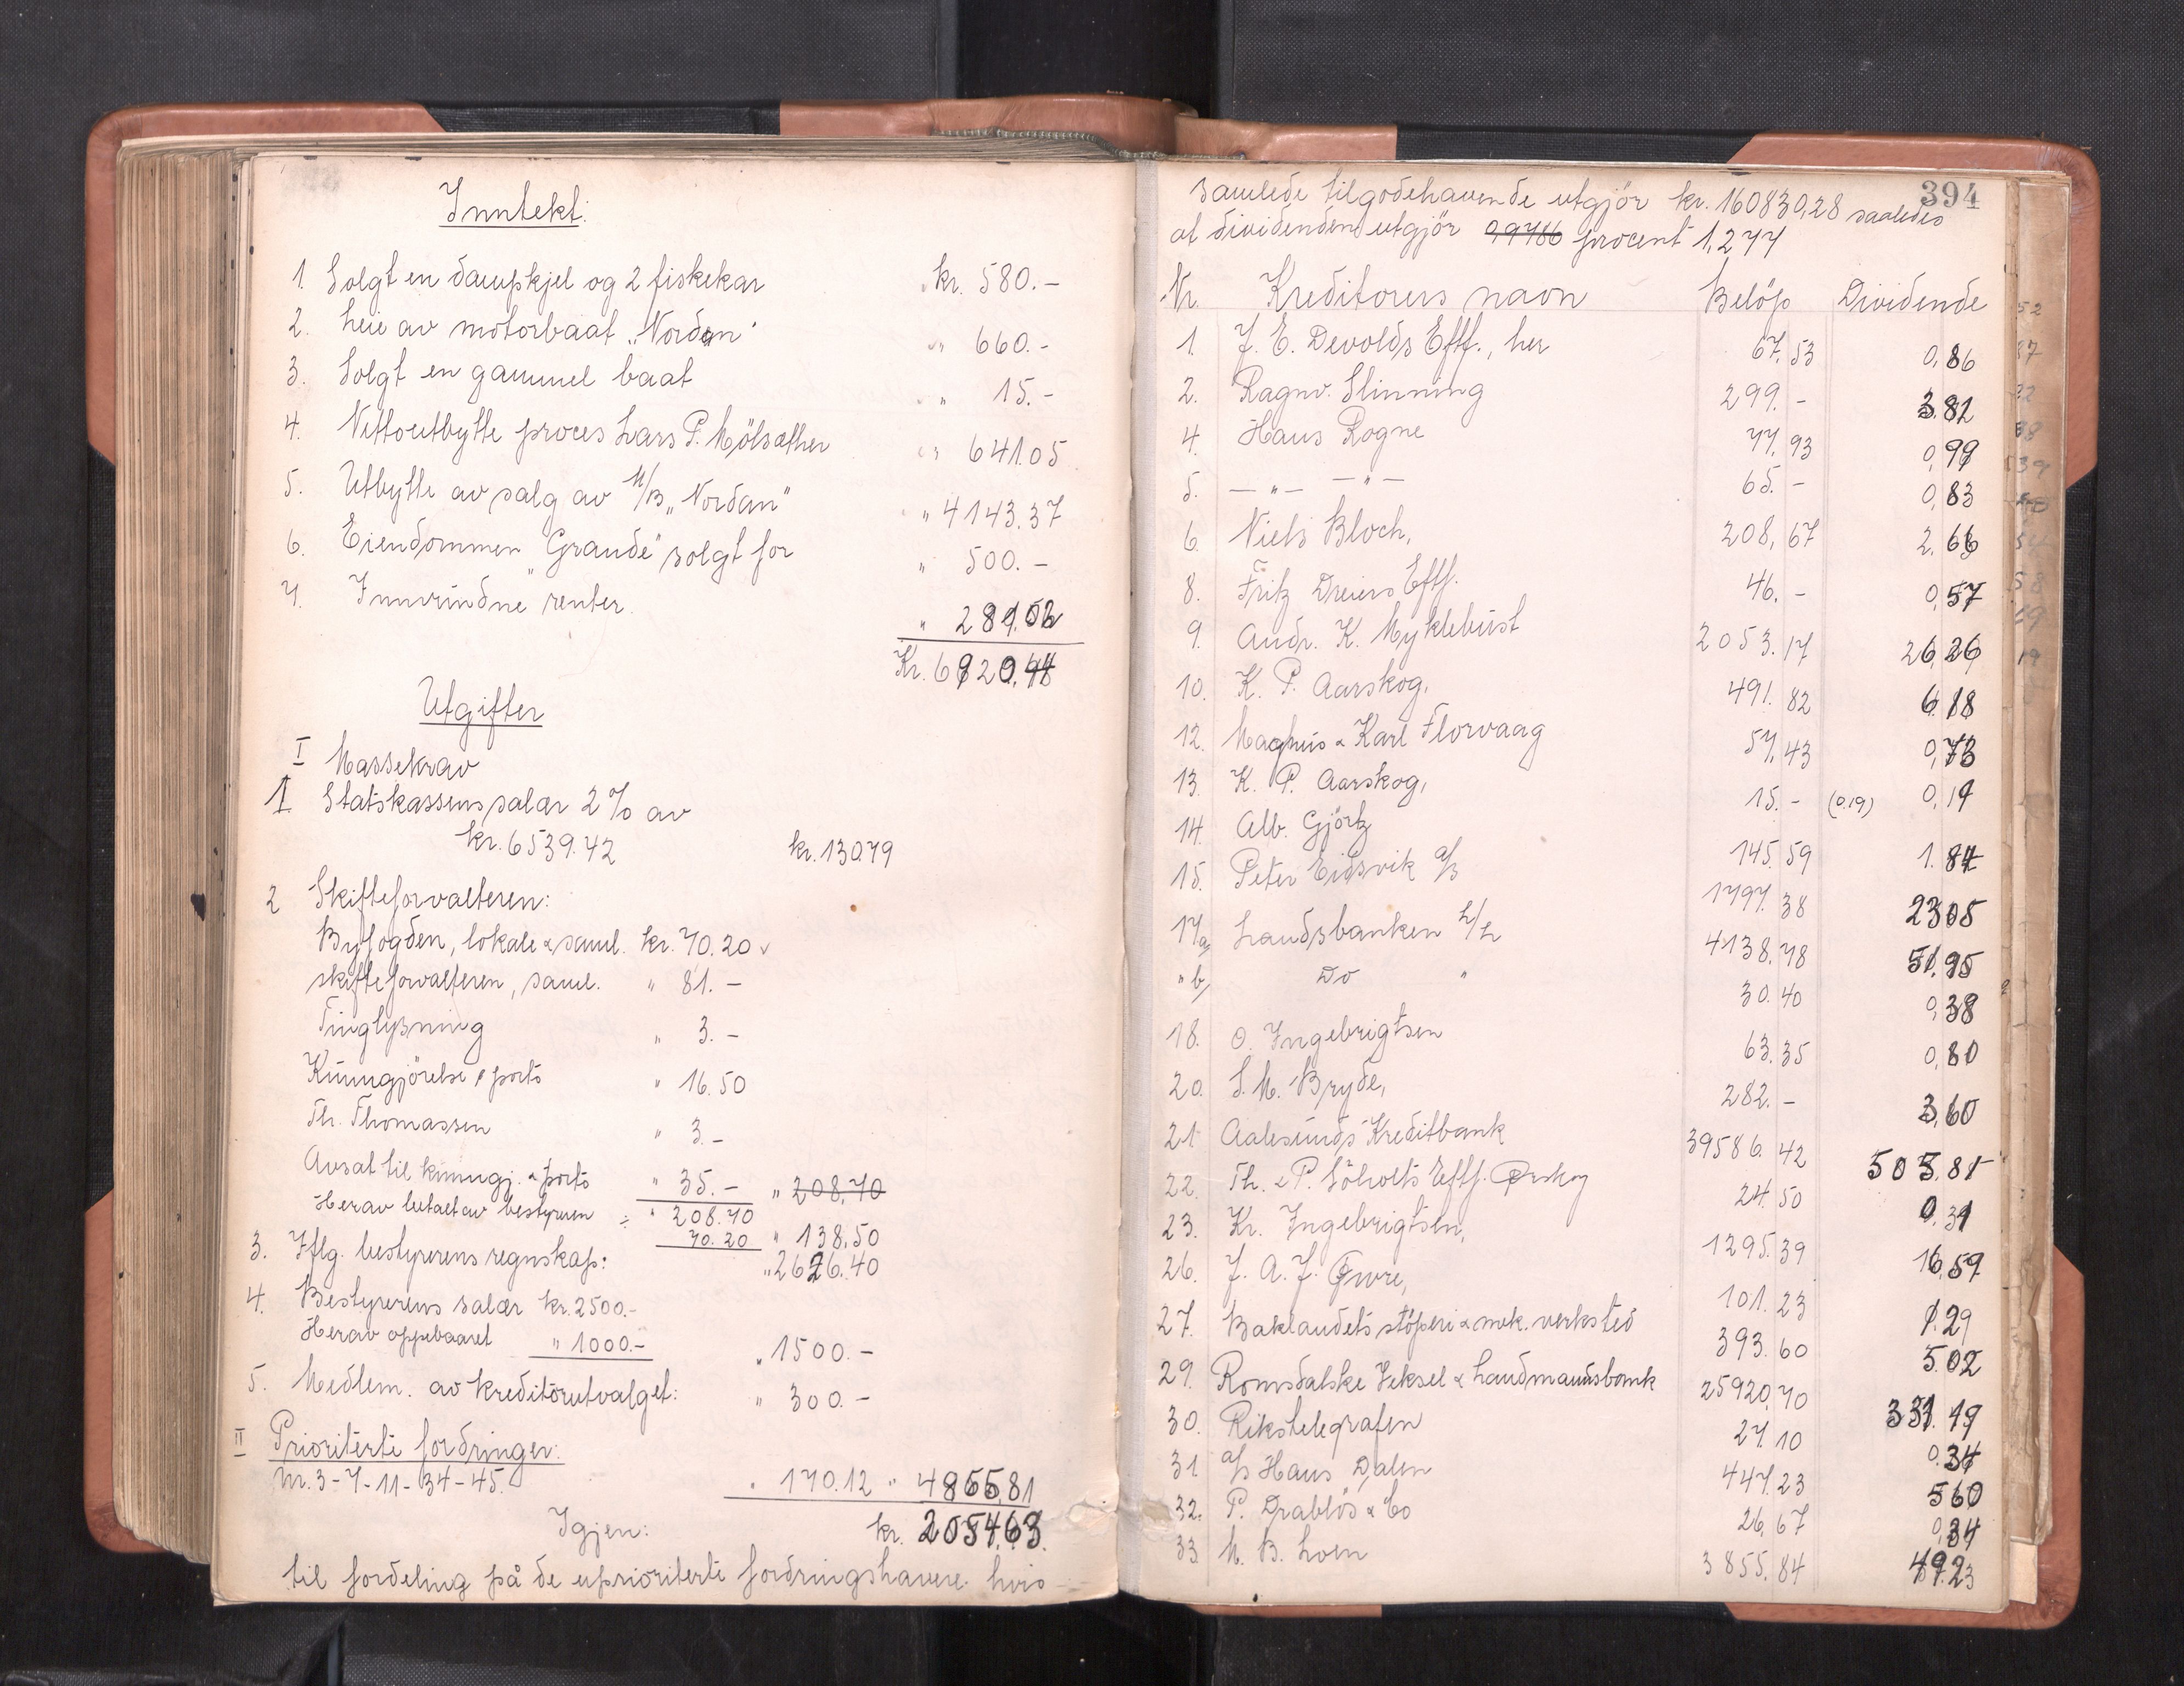 Inntekt:
1. Solgt en dampkjel og 2 fiskekar kr. 580.-
2. Leie av motorbaat „Nordan" " 660.-
3. Solgt en gammel baat " 15.-
4. Nettoutbytte proces Lars P. Mölsæther " 641.05
5. Utbytte av salg av M/B „Nordan" " 4143.37
6. Eiendommen „Grande" solgt for " 500.-
7. Innvundne renter. " 281.02
Kr. 6820.44
Utgifter
I Massekrav
1 Statskassens salær 2 % av
kr. 6539.42 kr. 130.79
2 Skifteforvalteren:
Byfogden, lokale & saml. kr. 70.20
skifteforvalteren, saml. " 81.-
Tinglysning " 3.-
Kunngjörelse & porto " 16.50
Th. Thomassen " 3.-
Avsat til kunngj. & porto " 35.- " 208.70
Herav betalt av bestyreren ÷ " 208.70
70.20 " 138.50
3. Iflg. bestyrerens regnskap: " 2626.40
4. Bestyrerens salær kr. 2500.-
Herav oppebaaret " 1000.- " 1500.-
5. Medlem. av kreditorutvalget: " 300.-
II Prioriterte fordringer:
Nr. 3-7-11-34-45. " 170.12 " 4865.81
Igjen: kr. 2054.63.
til fordeling på de uprioriterte fordringshavere hvis
394
samlede tilgodehavende utgjör kr. 160830,28 saaledes
at dividenden utgjör 0,9786 procent 1,277
Nr. Kreditorers navn Belöp Dividende
1. J. E. Devolds Eftf., her 67,53 0,86
2. Ragnv. Slinning 299.- 3.82
4. Hans Rogne 77,93 0,99
5. -"- -"- 65.- 0,83
6. Niels Bloch, 208,67 2,66
8. Fritz Dreiers Eftf. 46.- 0,57
9. Andr. K. Myklebust 2053.17 26,26
10. K. P. Aarskog, 491.82 6.18
12. Magnus & Karl Florvaag 57,43 0,73
13. K. P. Aarskog, 15.- (0.19) 0,19
14. Alb. Gjörtz 145.59 1.84
15. Peter Eidsvik A/S 1797.38 23.05
17a) Landsbanken L/L 4138.78 51,95
" b) Do " 30.40 0,38
18. O. Ingebrigtsen 63.35 0,80
20. S. M. Bryde, 282.- 3,60
21. Aalesunds Kreditbank 39586.42 505.81
22. Th. & P. Söholts Eftf. Ørskog 24.50 0.31
23. Kr. Ingebrigtsen, 1295.39 16,59
26. J. A. J. Øwre, 101.23 1.29
27. Baklandets stöperi & mek. verksted 393.60 5.02
29. Romsdalske Veksel & Landmannsbank 25920,70 331.19
30. Rikstelegrafen 27.10 0.34
31. A/S Hans Dalen 447.23 5.60
32. P. Drablös & Co 26,67 0,34
33. M. B. Loen 3855.84 49.23